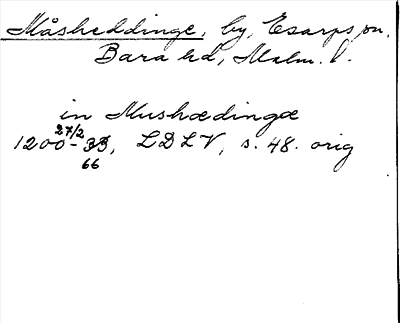 Måsheddinge, by, Esarps sn.
Bara hd, Malm. l.
in Mushædingæ
27/2
1200 - 35, LDLV, s. 48. orig
66